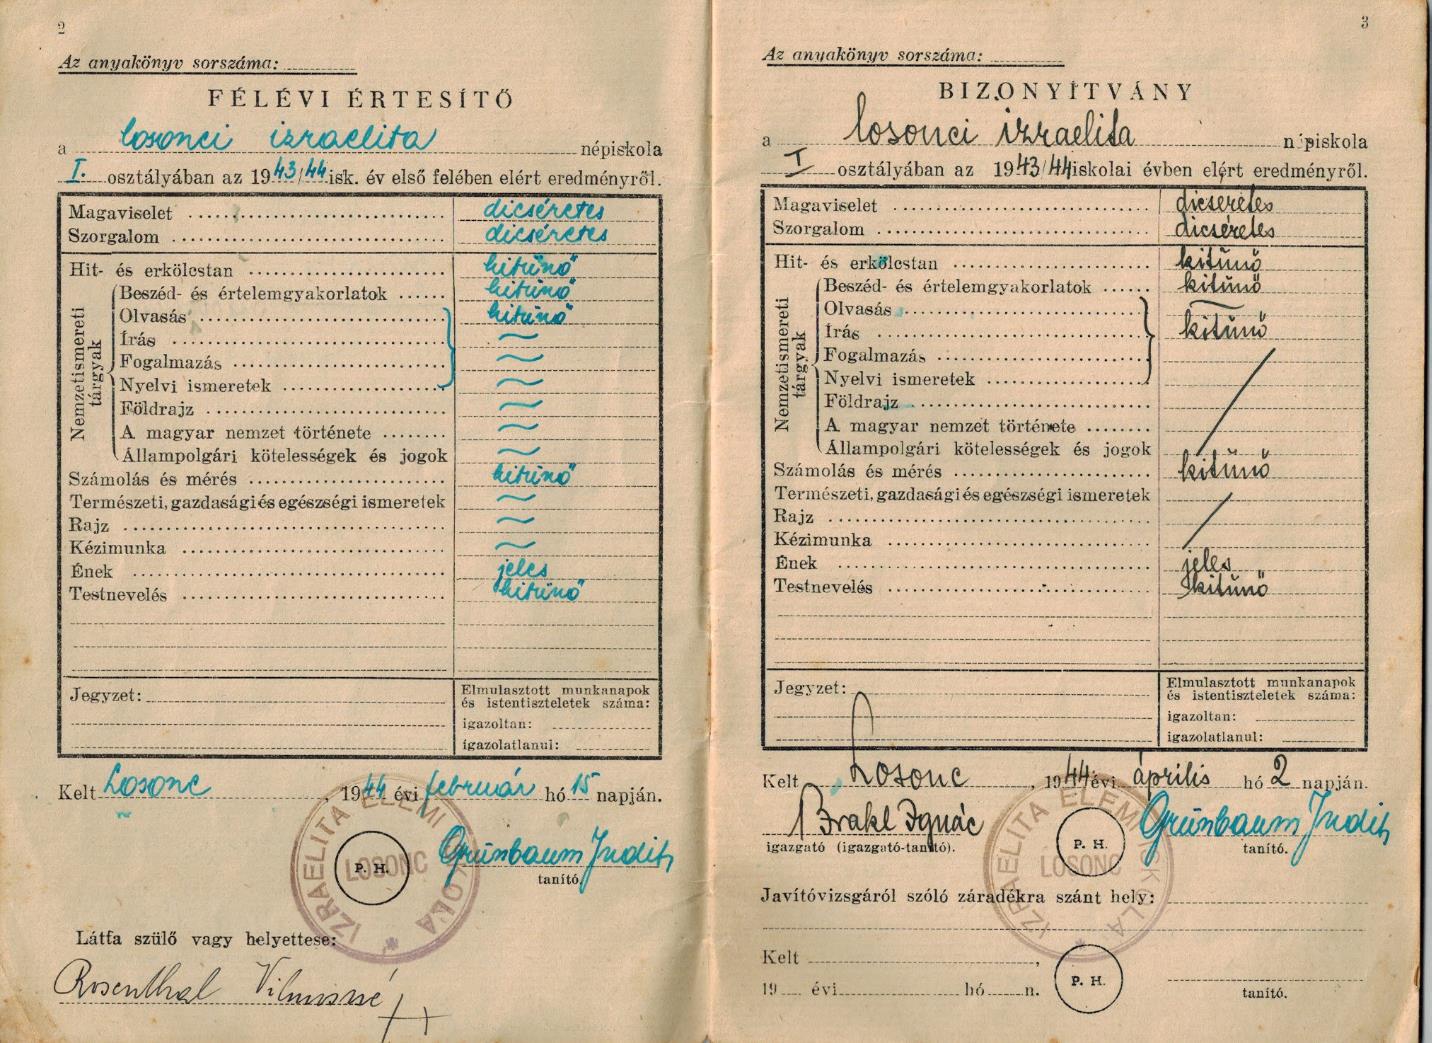 2
Az anyakönyv sorszáma:
FÉLÉVI ÉRTESÍTŐ
a losonci izraelita népiskola
I. osztályában az 1943/44 isk. év első felében elért eredményről.
Magaviselet dicséretes
Szorgalom dicséretes
Hit- és erkölcstan kitünő
Nemzetismereti tárgyak
Beszéd- és értelemgyakorlatok kitünő
Olvasás kitünő
Írás
Fogalmazás
Nyelvi ismeretek
Földrajz
A magyar nemzet története
Állampolgári kötelességek és jogok
Számolás és mérés kitünő
Természeti, gazdasági és egészségi ismeretek
Rajz
Kézimunka
Ének jeles
Testnevelés kitünő
Jegyzet:
Elmulasztott munkanapok
és istentiszteletek száma:
igazoltan:
igazolatlanul:
Kelt Losonc, 1944 évi február hó 15 napján.
IZRAELITA ELEMI ISKOLA
LOSONC
P. H.
Grünbaum Judit
tanító.
Látta szülő vagy helyettese:
Rosenthal Vilmosné
3
Az anyakönyv sorszáma:
BIZONYÍTVÁNY
a losonci izraelita népiskola
I osztályában az 1943/44 iskolai évben elért eredményről.
Magaviselet dicséretes
Szorgalom dicséretes
Hit- és erkölcstan kitünő
Nemzetismereti tárgyak
Beszéd- és értelemgyakorlatok kitünő
Olvasás
Írás kitünő
Fogalmazás
Nyelvi ismeretek
Földrajz
A magyar nemzet története
Állampolgári kötelességek és jogok
Számolás és mérés kitünő
Természeti, gazdasági és egészségi ismeretek
Rajz
Kézimunka
Ének jeles
Testnevelés kitünő
Jegyzet:
Elmulasztott munkanapok
és istentiszteletek száma:
igazoltan:
igazolatlanul:
Kelt Losonc, 1944 évi április hó 2 napján.
Brakl Ignác
igazgató (igazgató-tanító).
IZRAELITA ELEMI ISKOLA
LOSONC
P. H.
Grünbaum Judit
tanító.
Javítóvizsgáról szóló záradékra szánt hely:
Kelt
19 évi hó n.
P. H.
tanító.